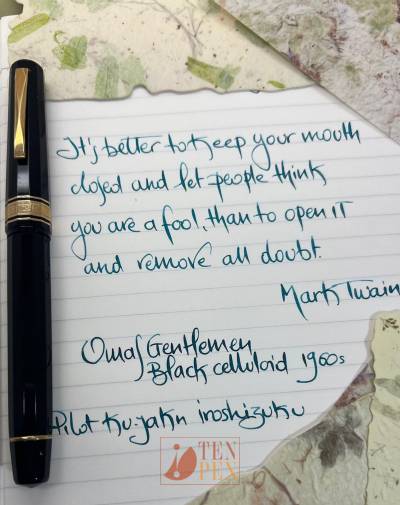 It's better to keep your mouth
closed and let people think
you are a fool, than to open IT
and remove all doubt.
Mark Twain
Omas Gentlemen
Black celluloid 1960s
Pilot Ku-jaku iroshizuku
TEN
PEN